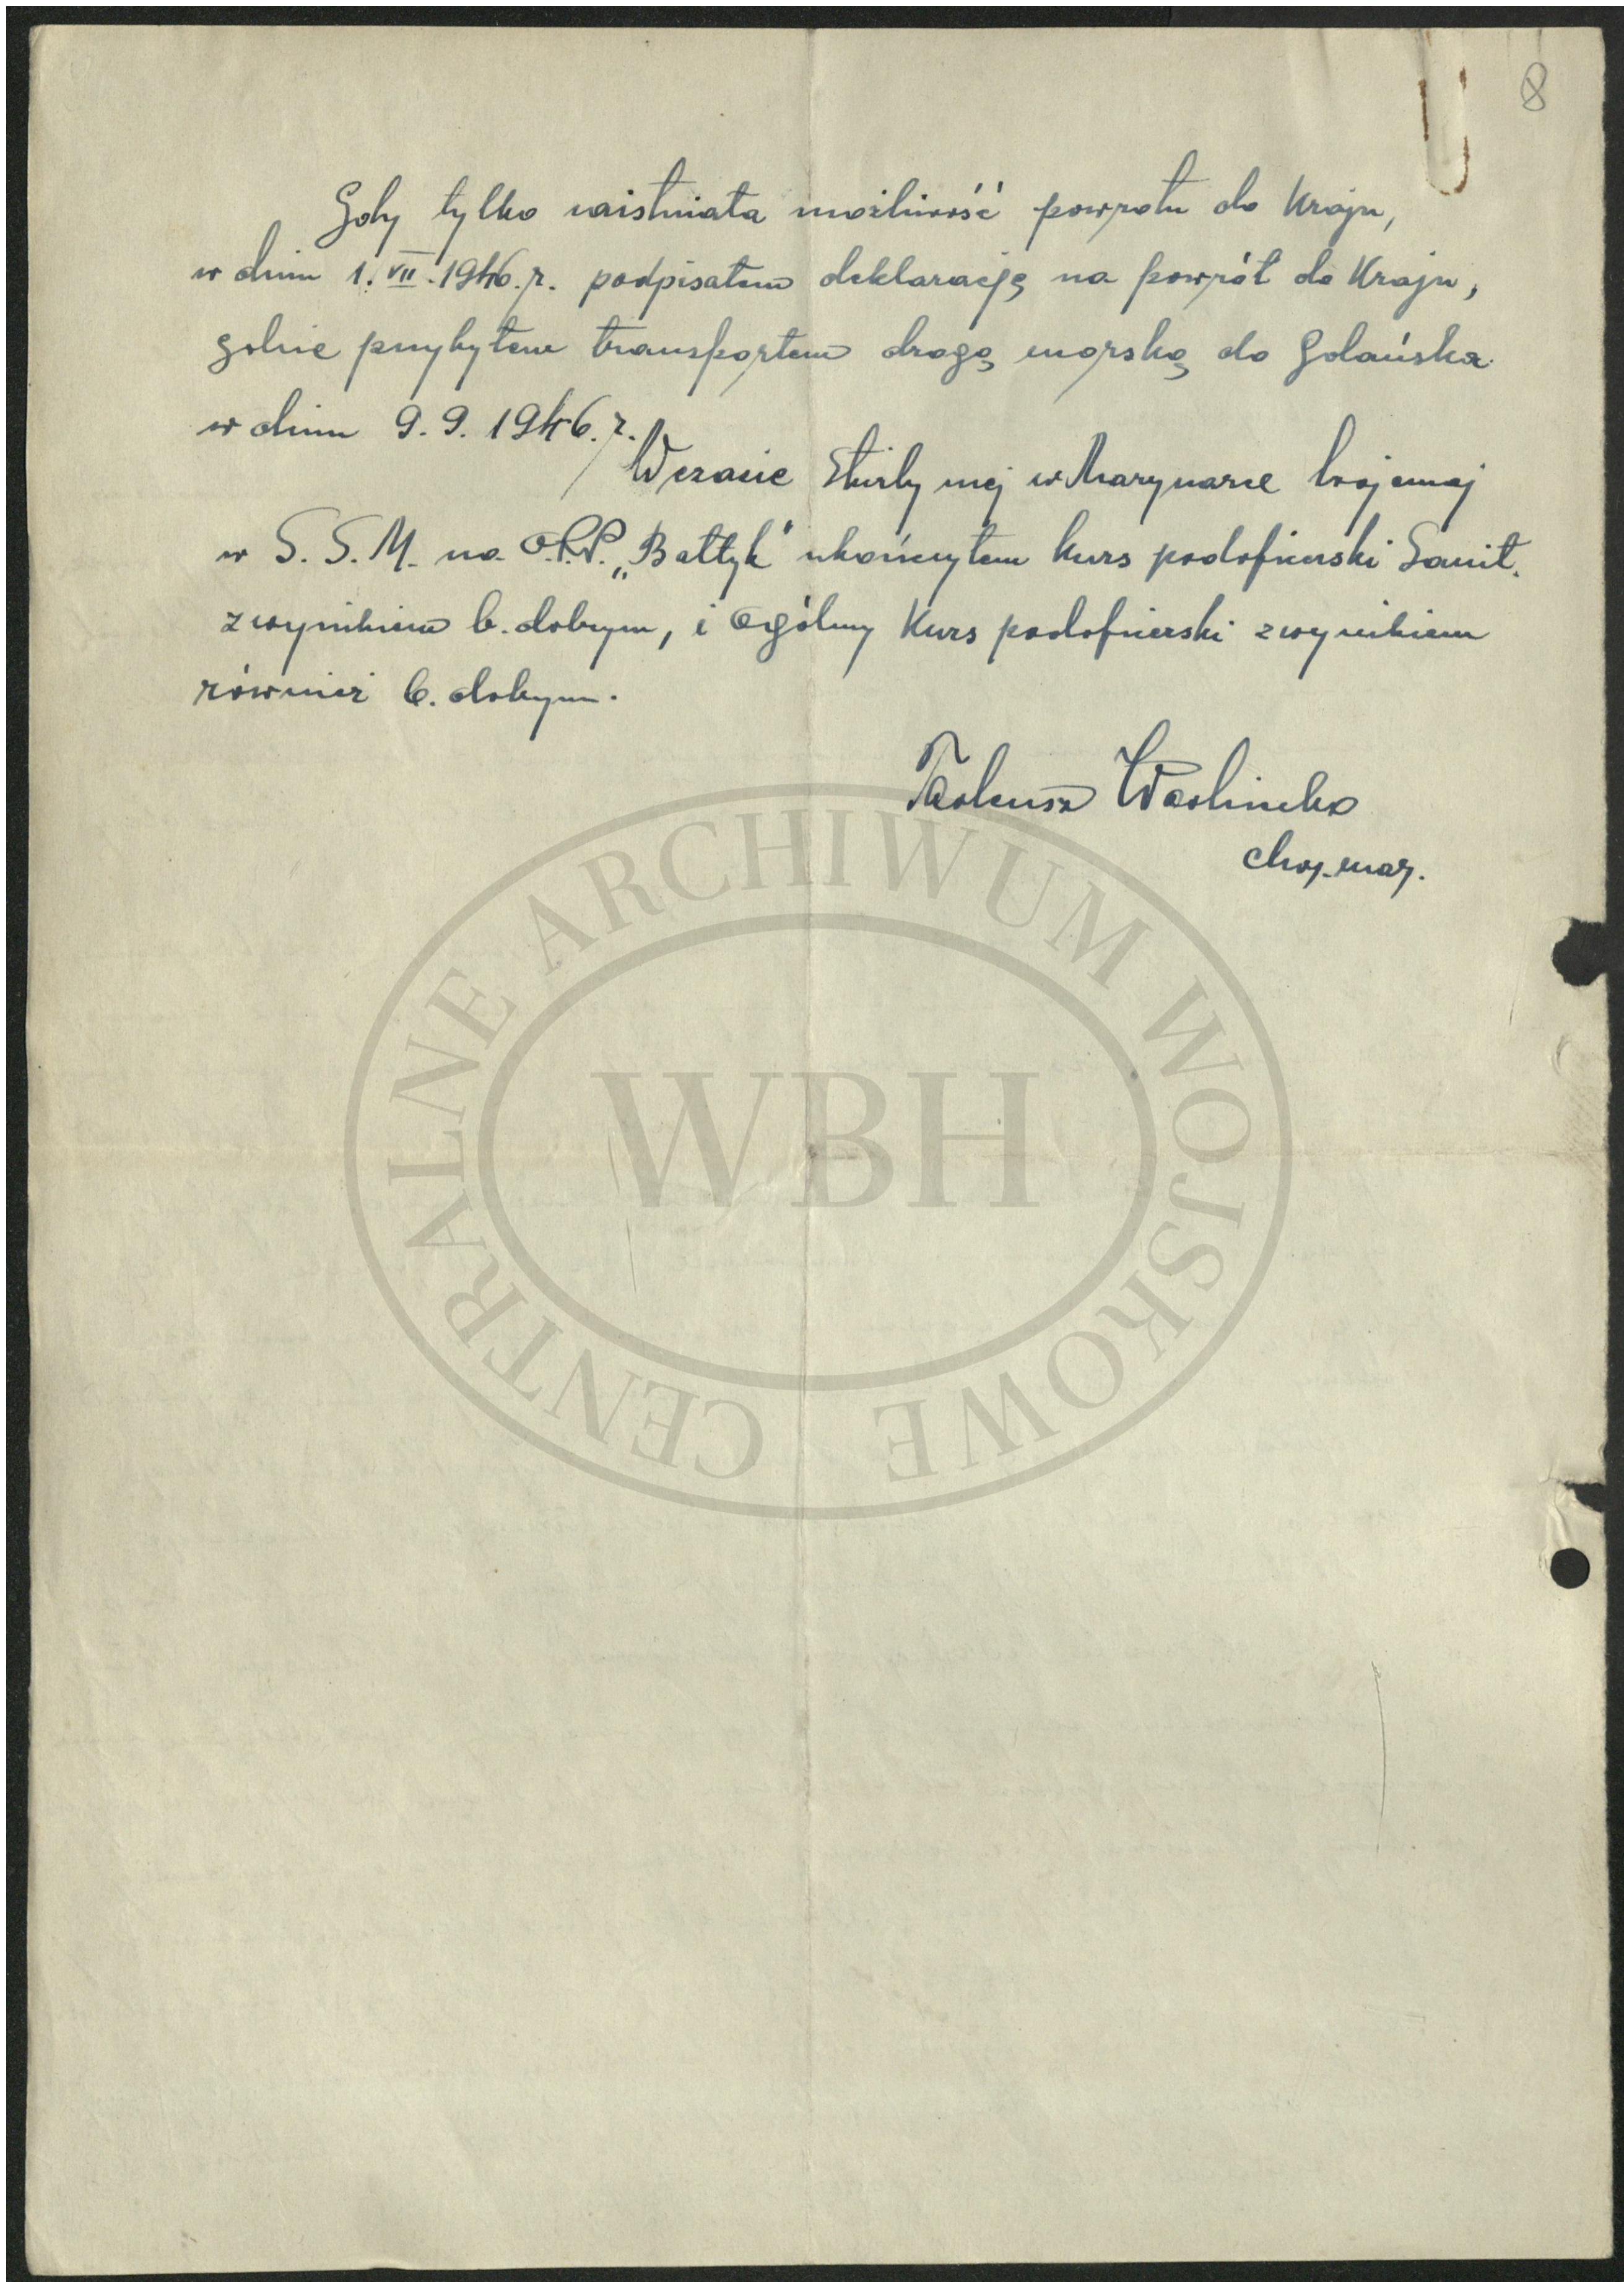 8
Gdy tylko zaistniała możliwość powrotu do Kraju,
w dniu 1. VII. 1946. r. podpisałem deklarację na powrót do Kraju,
gdzie przybyłem transportem drogą morską do Gdańska
w dniu 9. 9. 1946. r.
W czasie służby mej w Marynarce Wojennej
w S. S. M. na O.R.P. „Bałtyk" ukończyłem kurs podoficerski Sanit.
z wynikiem b. dobrym, i Ogólny Kurs podoficerski z wynikiem
również b. dobrym.
Tadeusz
mar.
CENTRALNE ARCHIWUM WOJSKOWE
WBH